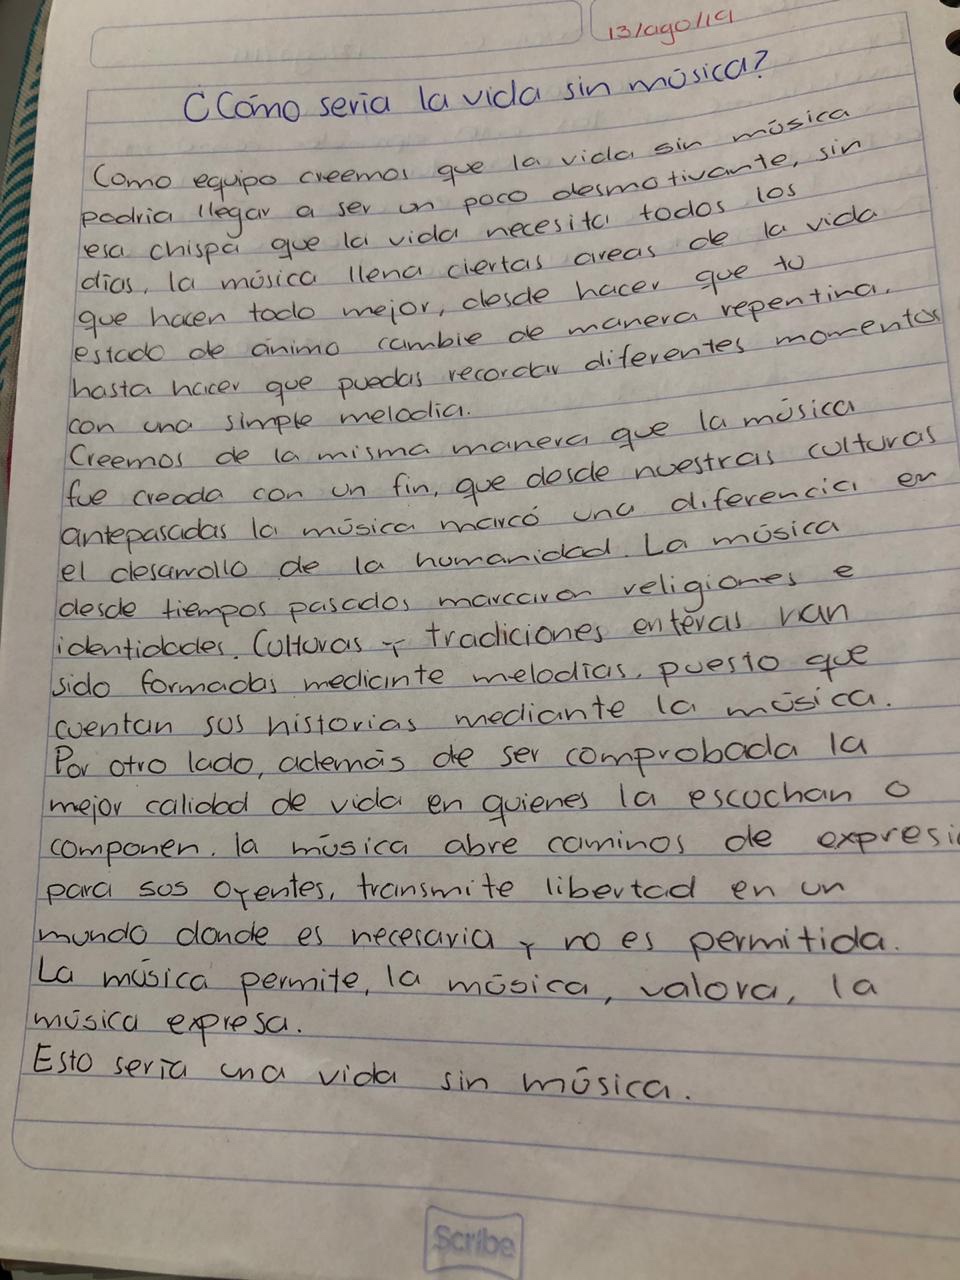 13/ago/19
¿Cómo seria la vida sin música?
Como equipo creemos que la vida sin música
podria llegar a ser un poco desmotivante, sin
esa chispa que la vida necesita todos los
dias, la música llena ciertas areas de la vida
que hacen todo mejor, desde hacer que tu
estado de ánimo cambie de manera repentina,
hasta hacer que puedas recordar diferentes momentos
con una simple melodia.
Creemos de la misma manera que la música
fue creada con un fin, que desde nuestras culturas
antepasadas la música marcó una diferencia en
el desarrollo de la humanidad. La música
desde tiempos pasados marcaron religiones e
identidades. Culturas y tradiciones enteras van
sido formadas mediante melodias, puesto que
cuentan sus historias mediante la música.
Por otro lado, además de ser comprobada la
mejor calidad de vida en quienes la escuchan o
componen, la música abre caminos de expresi
para sus oyentes, transmite libertad en un
mundo donde es necesaria y no es permitida.
La música permite, la música, valora, la
música expresa.
Esto sería una vida sin música.
Scribe